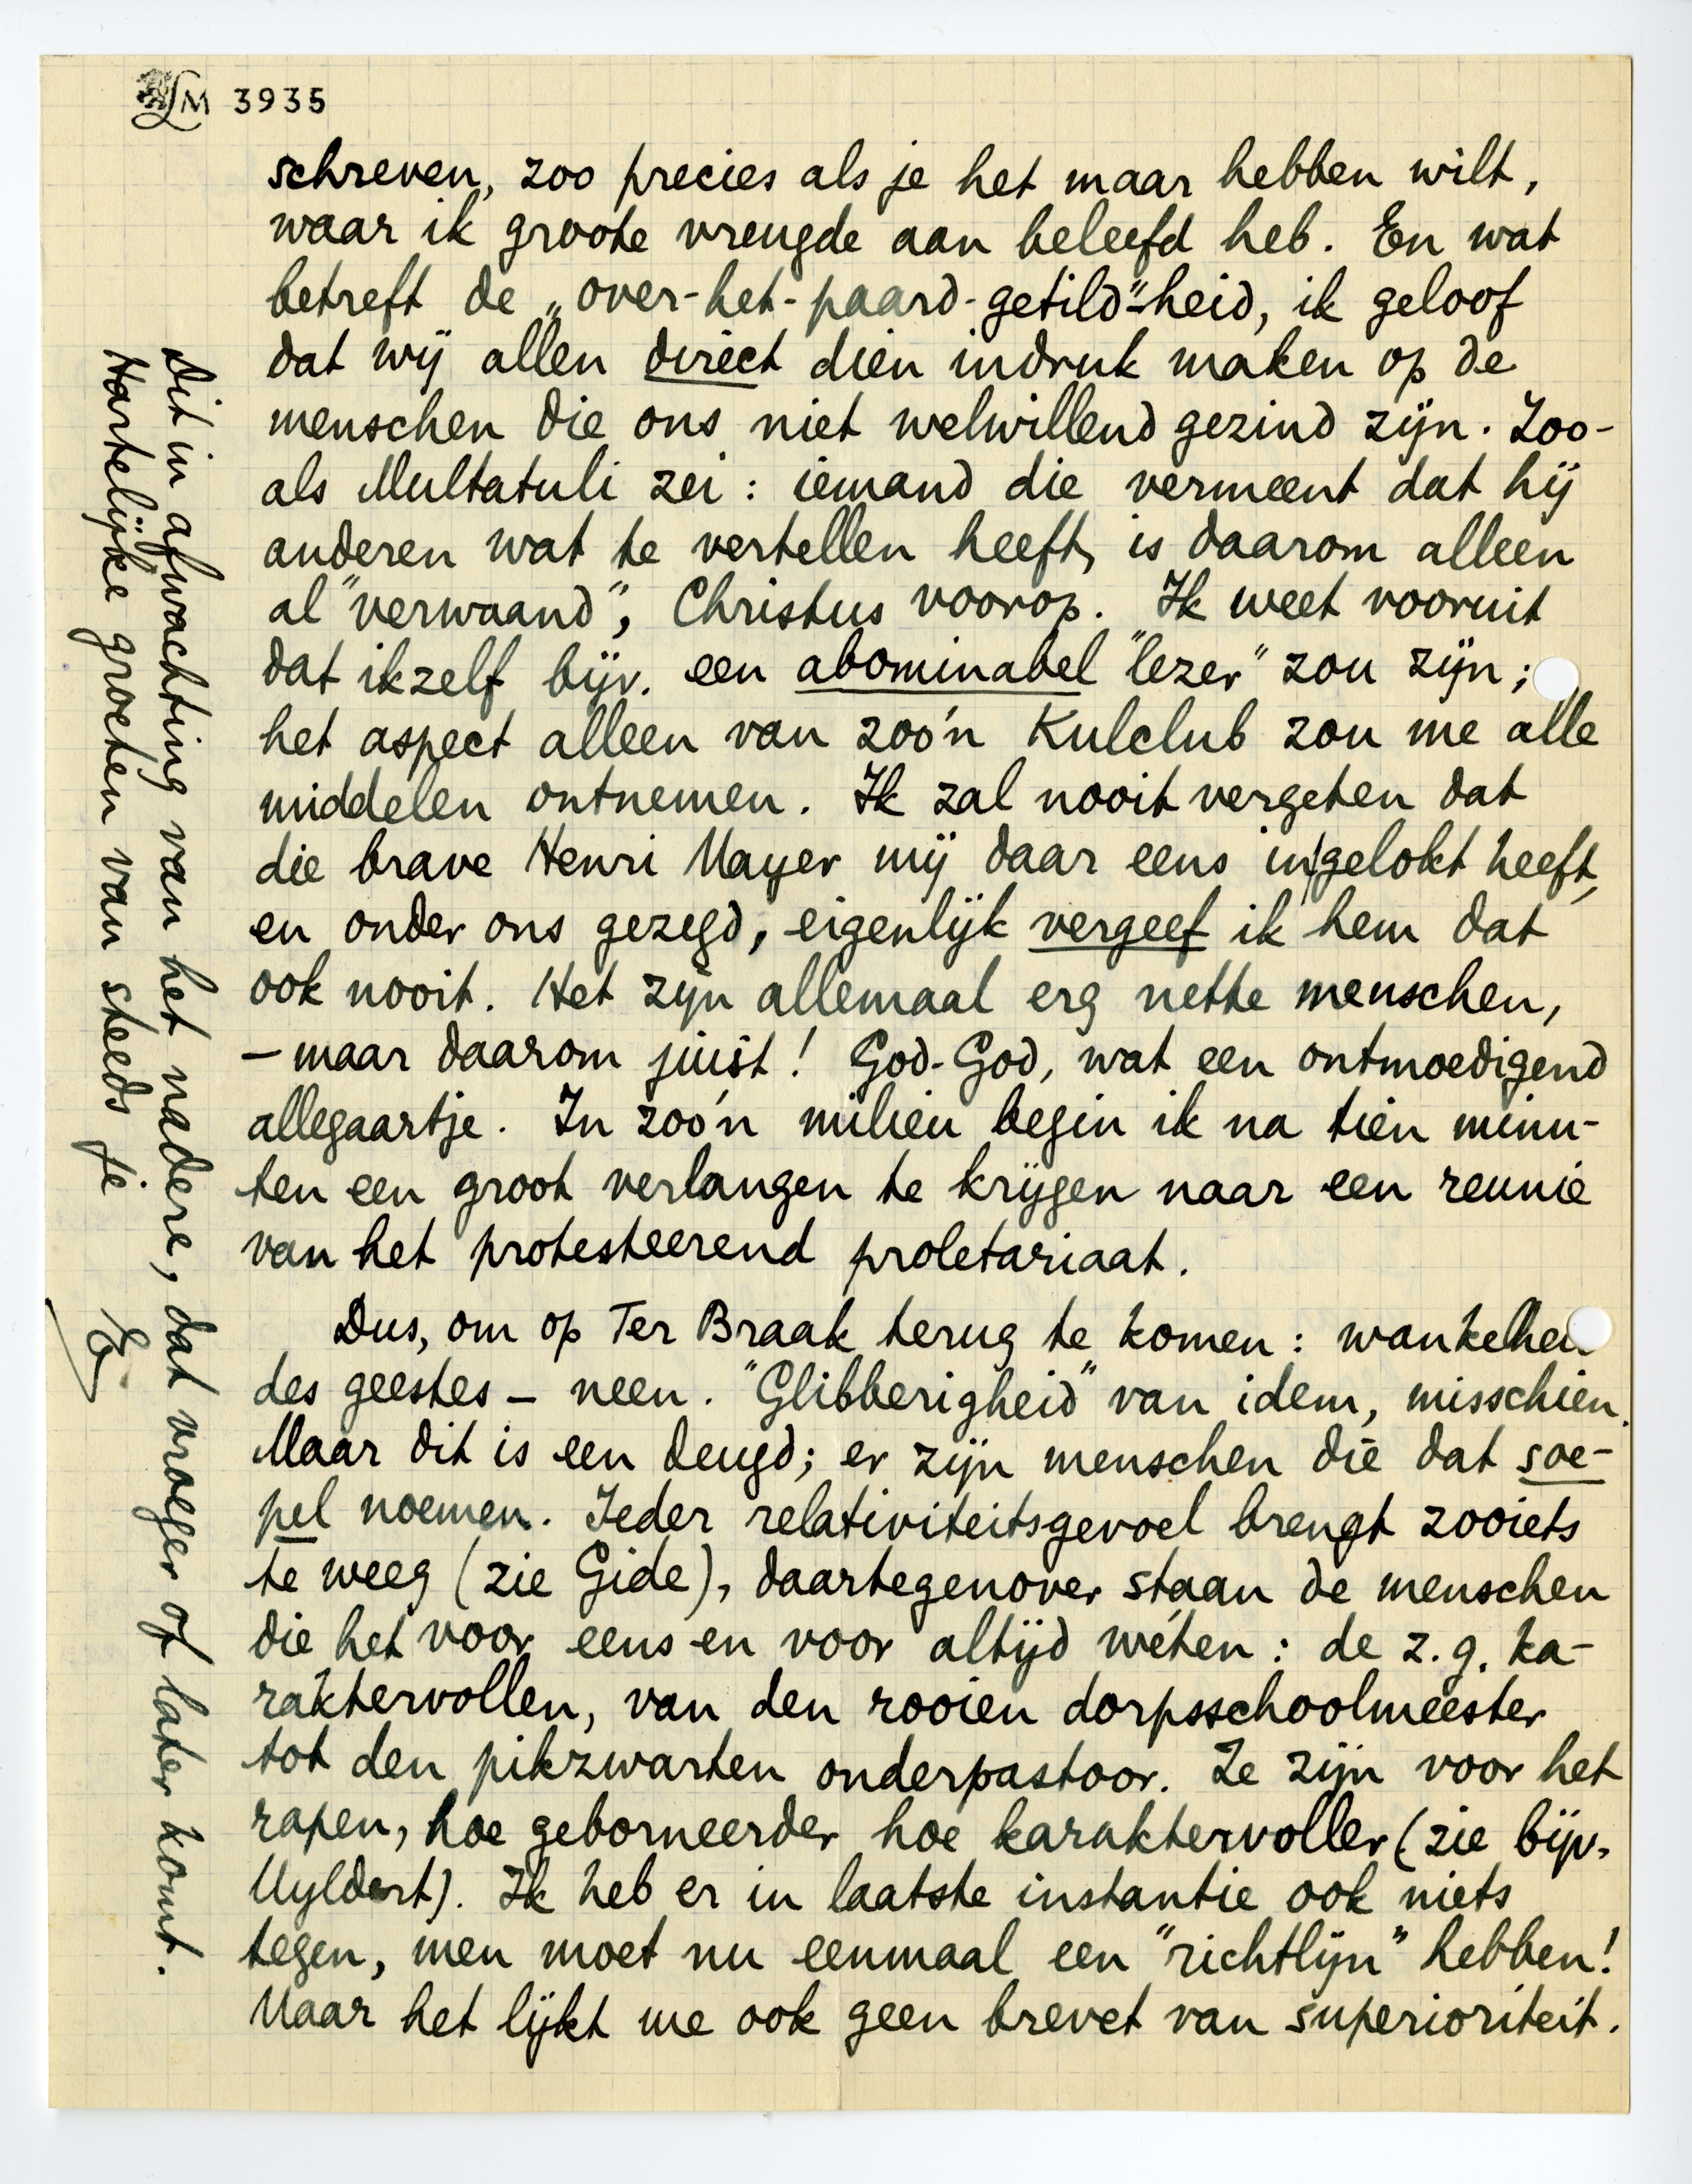 LM 3935
schreven, zoo precies als je het maar hebben wilt,
waar ik groote vreugde aan beleefd heb. En wat
betreft de „over-het-paard-getild"-heid, ik geloof
dat wij allen direct dien indruk maken op de
menschen die ons niet welwillend gezind zijn. Zoo-
als Multatuli zei: iemand die vermeent dat hij
anderen wat te vertellen heeft, is daarom alleen
al "verwaand", Christus voorop. Ik weet vooruit
dat ikzelf bijv. een abominabel "lezer" zou zijn;
het aspect alleen van zoo'n Kulclub zou me alle
middelen ontnemen. Ik zal nooit vergeten dat
die brave Henri Mayer mij daar eens in gelokt heeft,
en onder ons gezegd, eigenlijk vergeef ik hem dat
ook nooit. Het zijn allemaal erg nette menschen,
– maar daarom juist! God-God, wat een ontmoedigend
allegaartje. In zoo'n milieu begin ik na tien minu-
ten een groot verlangen te krijgen naar een reunie
van het protesteerend proletariaat.
Dus, om op Ter Braak terug te komen: wankelhei
des geestes – neen. "Glibberigheid" van idem, misschien.
Maar dit is een deugd; er zijn menschen die dat soe-
pel noemen. Ieder relativiteitsgevoel brengt zooiets
te weeg (zie Gide), daartegenover staan de menschen
die het voor eens en voor altijd wéten: de z.g. ka-
raktervollen, van den rooien dorpsschoolmeester
tot den pikzwarten onderpastoor. Ze zijn voor het
rapen, hoe geborneerder hoe karaktervoller (zie bijv.
Uyldert). Ik heb er in laatste instantie ook niets
tegen, men moet nu eenmaal een "richtlijn" hebben!
Maar het lijkt me ook geen brevet van superioriteit.
Dit in afwachting van het nadere, dat vroeger of later komt.
Hartelijke groeten van steeds je
E